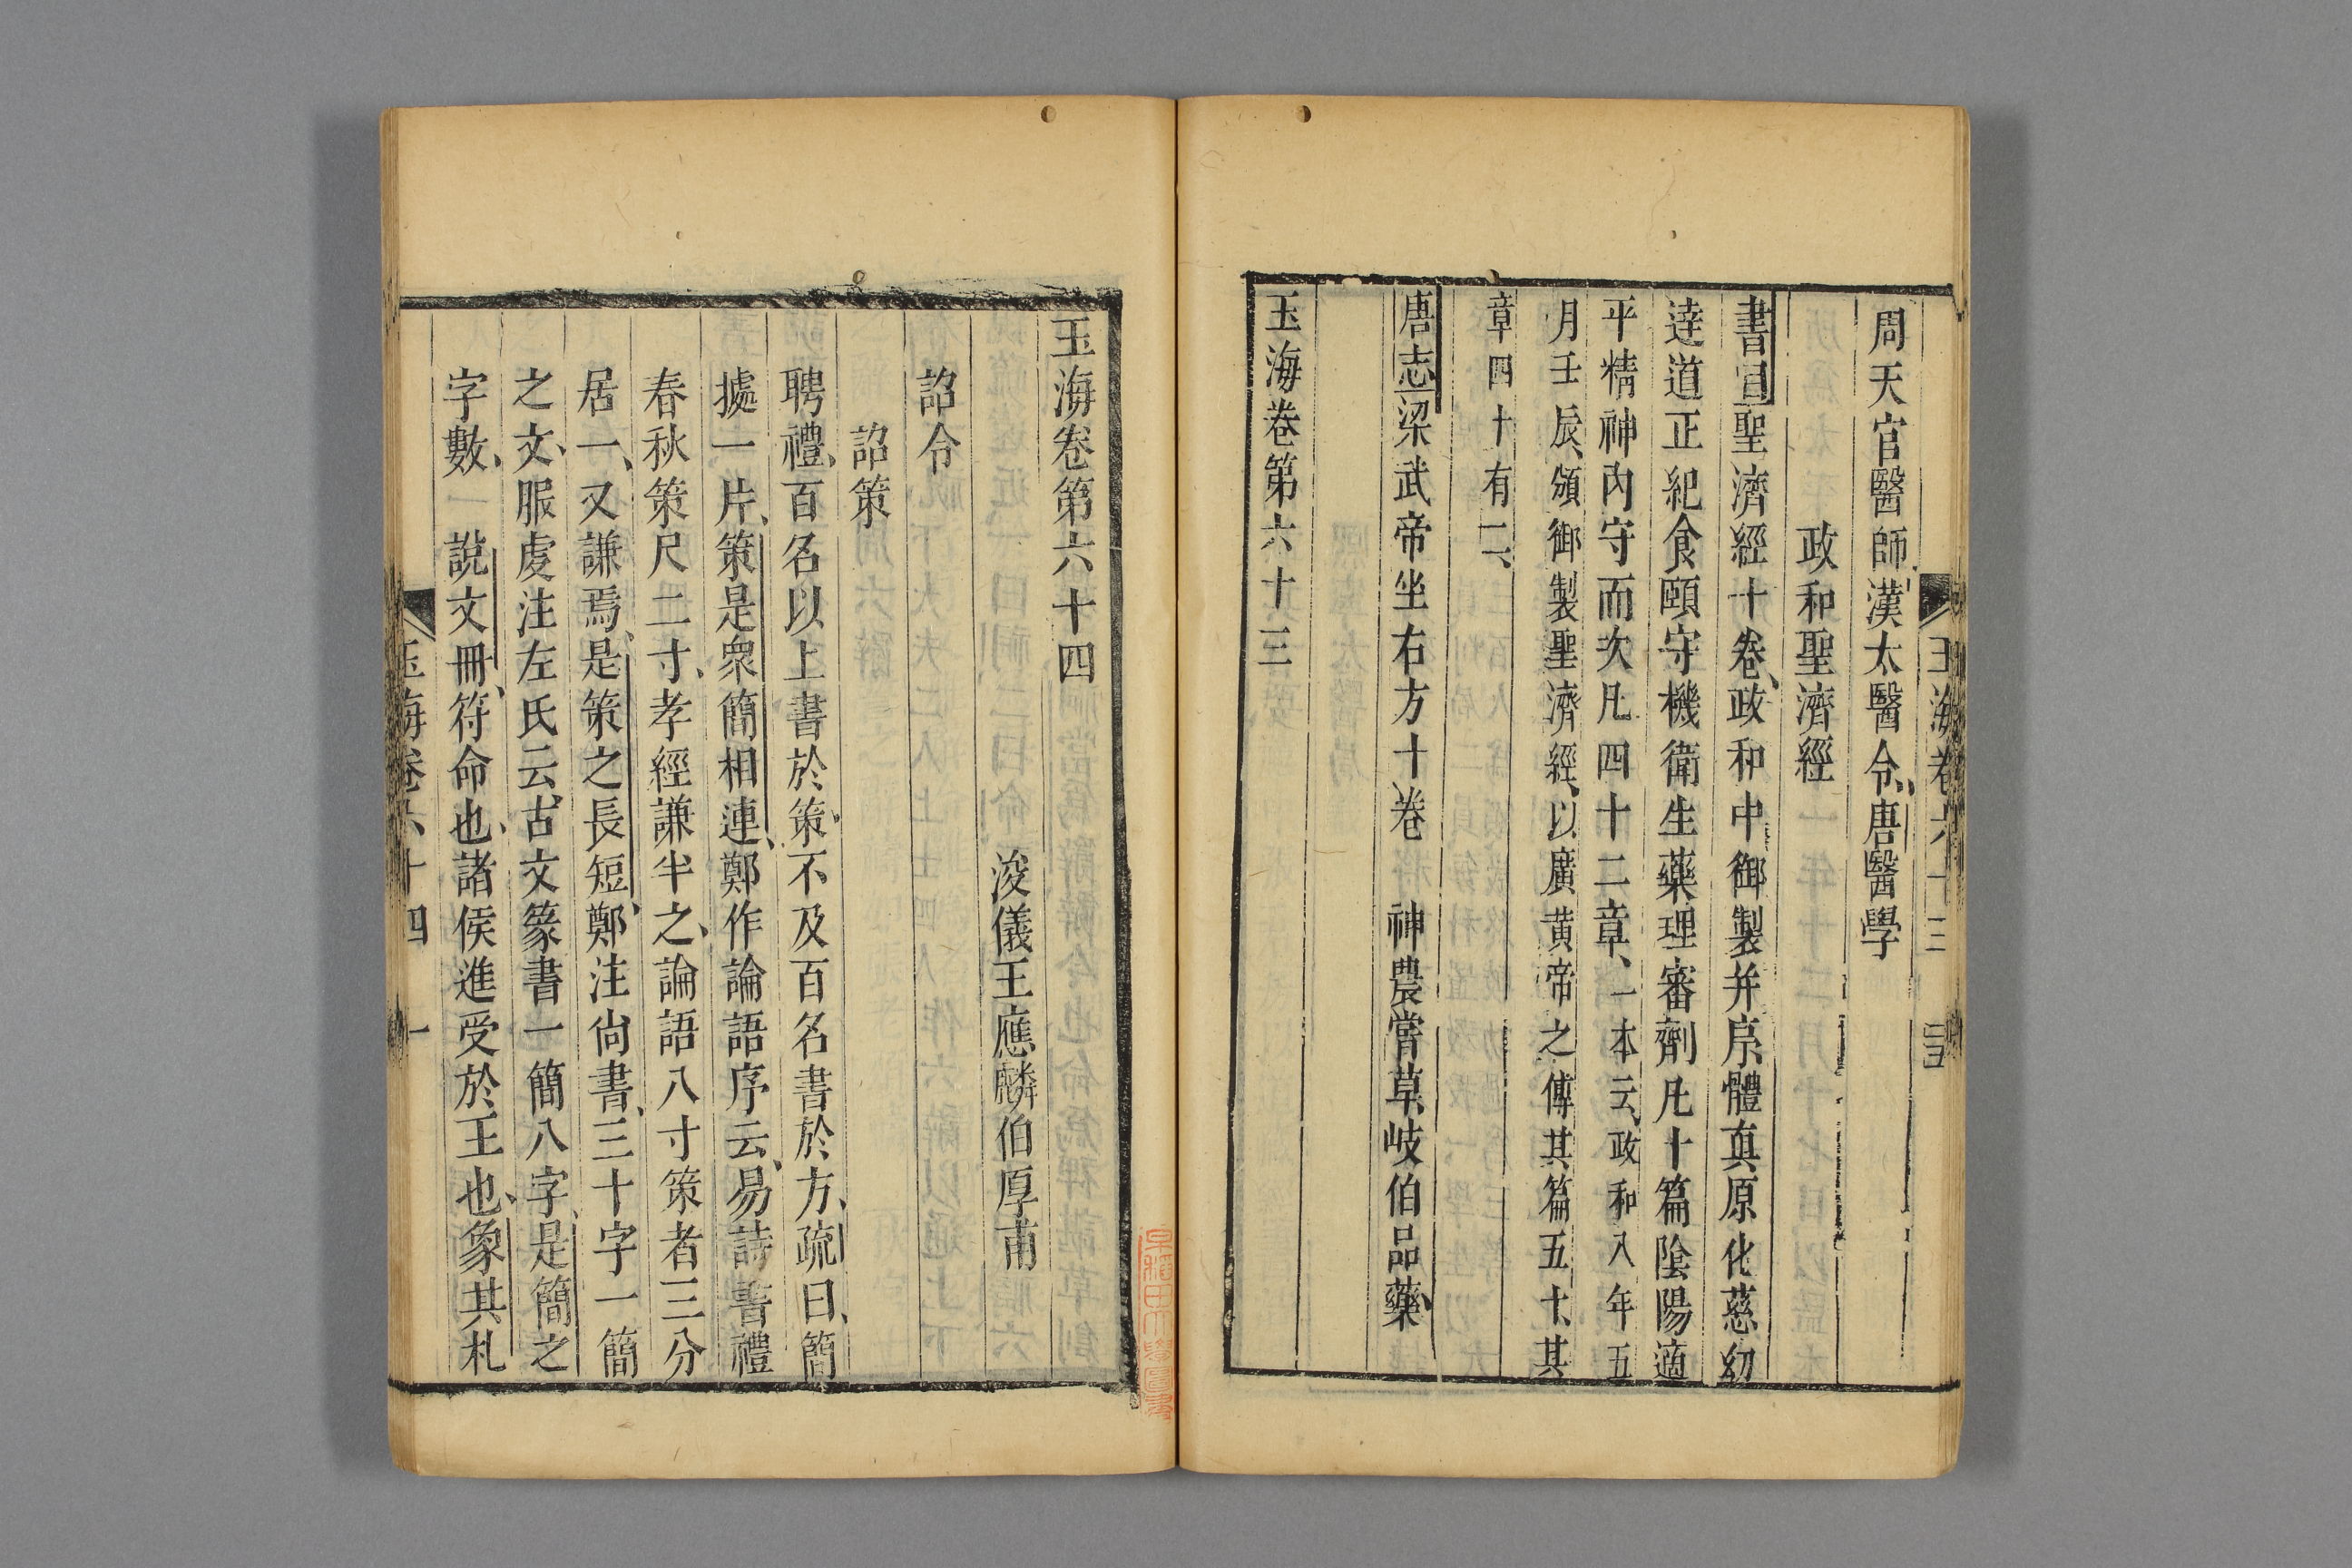 周天官醫師漢太醫令唐醫學
政和聖濟經
書目聖濟經十卷政和中御製并序體真原化慈幼
達道正紀食頤守機衛生藥理審劑凡十篇陰陽適
平精神內守而次凡四十二章一本云政和八年五
月壬辰頒御製聖濟經以廣黃帝之傳其篇五十其
章四十有二
唐志梁武帝坐右方十卷 神農嘗草岐伯品藥
玉海卷第六十三
玉海卷第六十四
浚儀王應麟伯厚甫
詔令
詔策
聘禮百名以上書於策不及百名書於方疏曰簡
據一片策是衆簡相連鄭作論語序云易詩書禮
春秋策尺二寸孝經謙半之論語八寸策者三分
居一又謙焉是策之長短鄭注尚書三十字一簡
之文服虔注左氏云古文篆書一簡八字是簡之
字數 說文冊符命也諸侯進受於王也象其札
玉海卷六十四 一